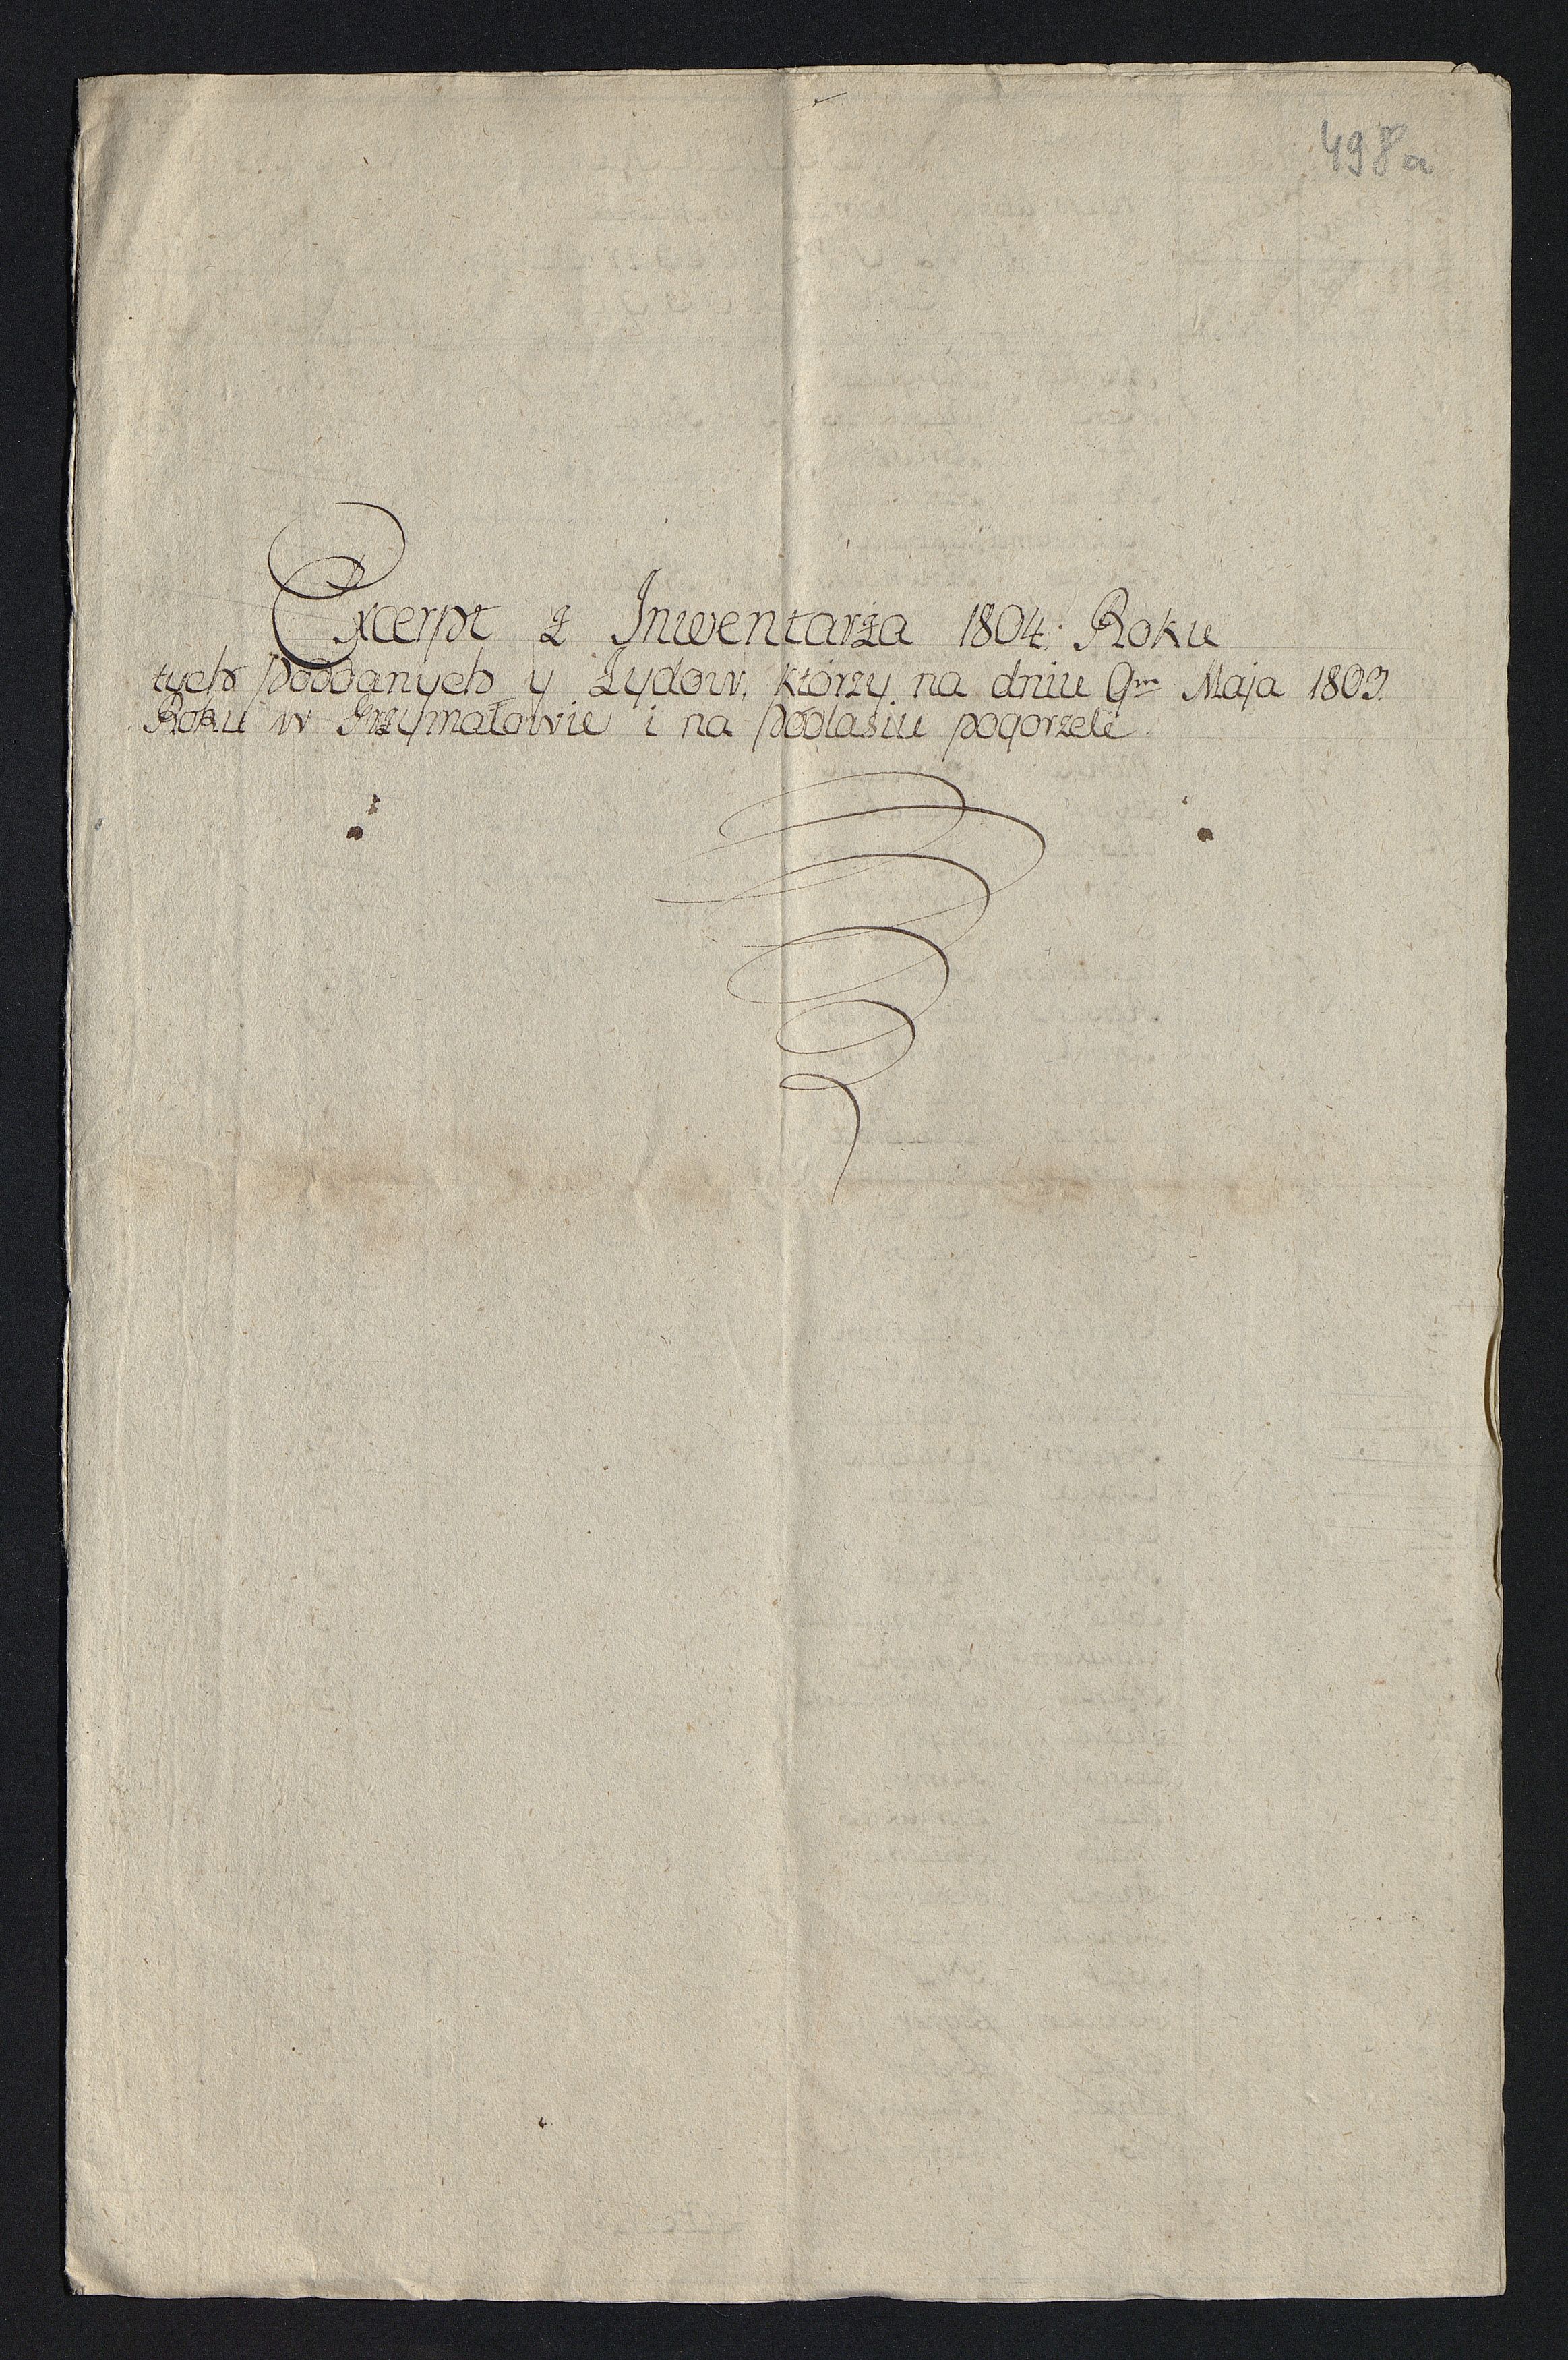 498a
Excerpt z Inwentarża 1804. Roku
tych poddanych y Żydow, ktorzy na dniu 9m Maja 1809.
Roku w Grzymałowie i na podlasiu pogorzeli.